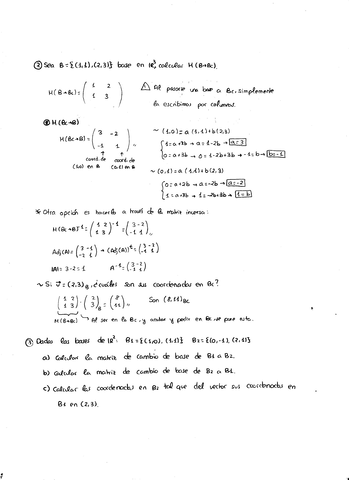 ② Sea B = {(1,1),(2,3)} base en ℝ², calcular M(B→Bc).
M(B→Bc) = ( 1 2
1 3 )
⚠ Al pasarte una base a Bc, simplemente
la escribimos por columnas.
M(Bc→B)
M(Bc→B) = ( 3 -2
-1 1 )
coord. de (1,0) en B
coord. de (0,1) en B
~ (1,0) = a (1,1) + b (2,3)
1 = a + 2b → a = 1 - 2b → a = 3
0 = a + 3b → 0 = 1 - 2b + 3b → -1 = b → b = -1
~ (0,1) = a (1,1) + b (2,3)
0 = a + 2b → a = -2b → a = -2
1 = a + 3b → 1 = -2b + 3b → 1 = b
* Otra opción es hacerlo a través de la matriz inversa:
M(Bc→B) = ( 1 2 1 3 )⁻¹ = ( 3 -2 -1 1 )
Adj(A) = ( 3 -1 -2 1 ) → (Adj(A))ᵗ = ( 3 -2 -1 1 )
|A| = 3 - 2 = 1 A⁻¹ = ( 3 -2 -1 1 )
~ Si v = (2,3)B, ¿cuáles son sus coordenadas en Bc?
( 1 2 1 3 ) · ( 2 3 )B = ( 8 11 ) Son (8,11)Bc
M(B→Bc) Al ser en la Bc, y acabar y pedir en Bc, se pone esta.
③ Dadas las bases de ℝ²: B1 = {(1,0), (1,1)} B2 = {(0,-1), (2,1)}
a) Calcular la matriz de cambio de base de B1 a B2.
b) Calcular la matriz de cambio de base de B2 a B1.
c) Calcular las coordenadas en B2 tal que del vector sus coordenadas en
B1 son (2,3).